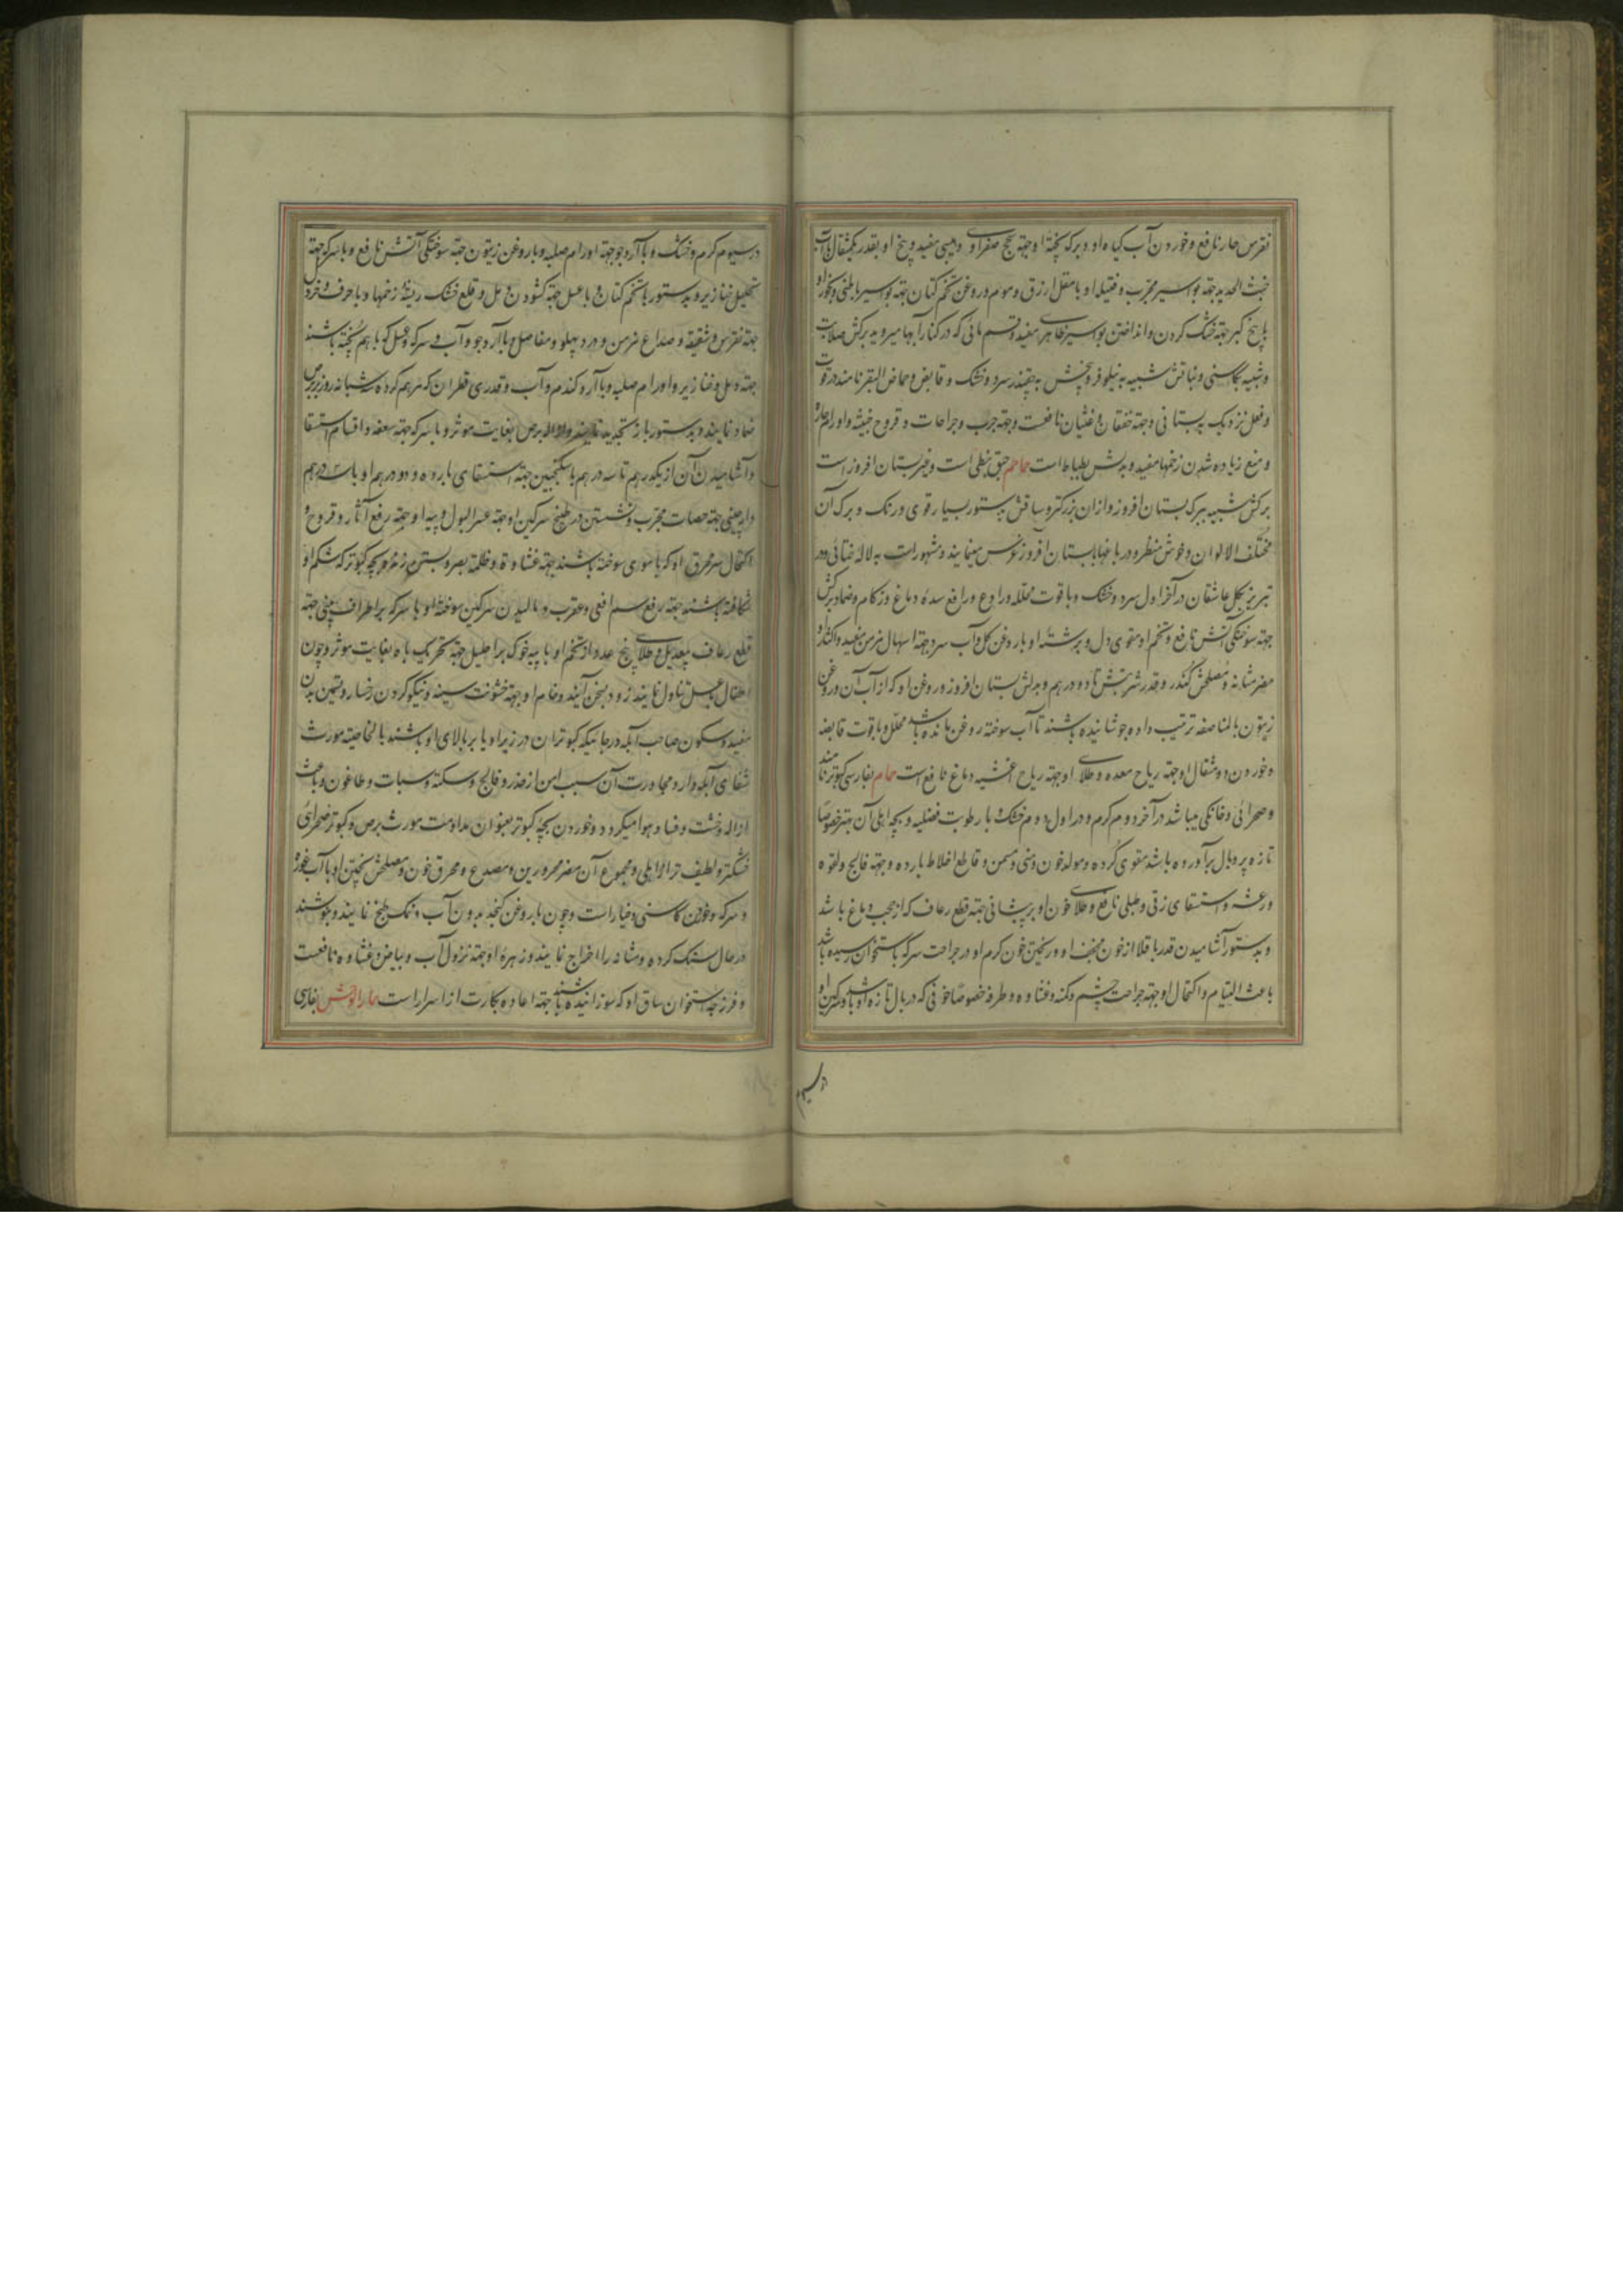 نقرس حار نافع و خوردن آب گیاه او و برک پختهٔ او جهة سحج صفراوی و اسپی مفید و بیخ او بقدر یکمثقال با آب
خبث الحدید جهة بواسیر مجرب و فتیله او با مقل ازرق و موم و روغن تخم کتان جهة بواسیر باطنی و بخور او
با بیخ کبر جهة خشک کردن و انداختن بواسیر ظاهر مفید و قسم مائی که در کنار آبها میروید برکش صلابت
و شبیه بکاسنی و نباتش شبیه به نیلوفر و بیخش به چقندر سرد و خشک و قابض و حماض البقر نامند در قوت
و فعل نزدیک به بستانی و جهة خفقان و غثیان نافعست و جهة جرب و جراحات و قروح خبیثه و اورام حاره
و منع زیاده شدن زخمها مفید و بدلش بطباط است حماحم حبق نبطی است و غیر بستان افروز است
برکش شبیه ببرک بستان افروز و از ان بزرکتر و ساقش بدستور بسیار قوی و رنک و برک آن
مختلف الالوان و خوش منظر و در باغها با بستان افروز غرس مینمایند و مشهور است به لاله خطائی و در
تبریز بکل عاشقان در آخر اول سرد و خشک و با قوت محلله و رادع و رافع سدهٔ دماغ و زکام و ضماد برکش
جهة سوختکی آتش نافع و تخم او مقوی دل و برشتهٔ او با روغن کل و آب سرد جهة اسهال مزمن مفید و اکثار او
مضر مثانه و مصلحش کندر و قدر شربتش تا دو درهم و بدلش بستان افروز و روغن او که از آب آن و روغن
زیتون بالمناصفه ترتیب داده جوشانیده باشند تا آب سوخته روغن مانده باشد محلل و با قوت قابضه
و خوردن دو مثقال او جهة ریاح معده و طلای او جهة ریاح اغشیه دماغ نافع است حمام بفارسی کبوتر نامند
و صحرائی و خانکی میباشد در آخر دوم کرم و در اول دوم خشک با رطوبت فضلیه و بچه اهلی آن بهتر خصوصا
تازه پر و بال برآورده باشد مقوی کرده و مولد خون و منی و مسمن و قاطع اخلاط بارده و جهة فالج و لقوه
و رعشه و استسقای زقی و طبلی نافع و طلای خون او بر پیشانی جهة قطع رعاف که از حجب دماغ باشد
و بدستور آشامیدن قدر باقلا از خون مجفف او و ریختن خون کرم او در جراحت سر که باستخوان رسیده باشد
باعث التیام و اکتحال او جهة جراحت چشم و کمنه و غشاوه و طرفه خصوصا خونی که در بال تازه او باشد و سرکین او
در سیوم
در سیوم کرم و خشک و با آرد جو جهة اورام صلبه و با روغن زیتون جهة سوختکی آتش نافع و با سرکه جهة
تحلیل خنازیر و بدستور با تخم کتان و با عسل جهة کشودن دمل و قلع خشک ریشهٔ زخمها و با حرف و خردل
جهة نقرس و شقیقه و صداع مزمن و درد پهلو و مفاصل و با آرد جو و آب و سرکه و عسل که با هم پخته باشند
جهة دمل و خنازیر و اورام صلبه و با آرد کندم و آب و قدری قطران که مرهم کرده سه شبانه روز بر برص
ضماد نمایند و بدستور باز تجدید نمایند در ازاله برص بغایت موثر و با سرکه جهة سعفه و اقسام استسقا
و آشامیدن آن از یکدرهم تا سه درهم با سکنجبین جهة استسقای بارده و دو درهم او با سه درهم
دارچینی جهة حصات مجرب و نشستن در طبیخ سرکین او جهة عسر البول و پیه او جهة رفع آثار و قروح و
اکتحال سر محرق او که با موی سوخته باشند جهة غشاوه و ظلمة بصر و بستن زخم و بچه کبوتر که شکم او
شکافته باشند جهة رفع سم افعی و عقرب و مالیدن سرکین سوختهٔ او با سرکه بر اطراف بینی جهة
قطع رعاف بیعدیل و طلای پنج عدد از تخم او با پیه خوک بر احلیل جهة تحریک باه بغایت موثر و چون
اطفال با عسل تناول نمایند زود بسخن آیند و خام او جهة خشونت سینه و نیکو کردن رخسار و تسمین بدن
مفید و سکون صاحب آبله در جائیکه کبوتران در زیر او یا بر بالای او باشند بالخاصیته مورث
شفای آبله دار و مجاورت آن سبب امن از خدر و فالج و سکته و سبات و طاعون و باعث
ازاله وحشت و فساد هوا میکردد و خوردن بچه کبوتر بعنوان مداومت مورث برص و کبوتر صحرائی
خشکتر و لطیف تر از اهلی و مجموع آن مضر محرورین و مصدع و محرق خون و مصلحش پختن او با آب غوره
و سرکه و خوردن کاسنی و خیار است و چون با روغن کنجد بدون آب و نمک طبخ نمایند و بنوشند
در حال سنک کرده و مثانه را اخراج نمایند و زهرهٔ او جهة نزول آب و بیاض و غشاوه نافعست
و فرزجه استخوان ساق او که سوزانیده باشند جهة اعاده بکارت از اسرار است حمار الوحش بفارسی